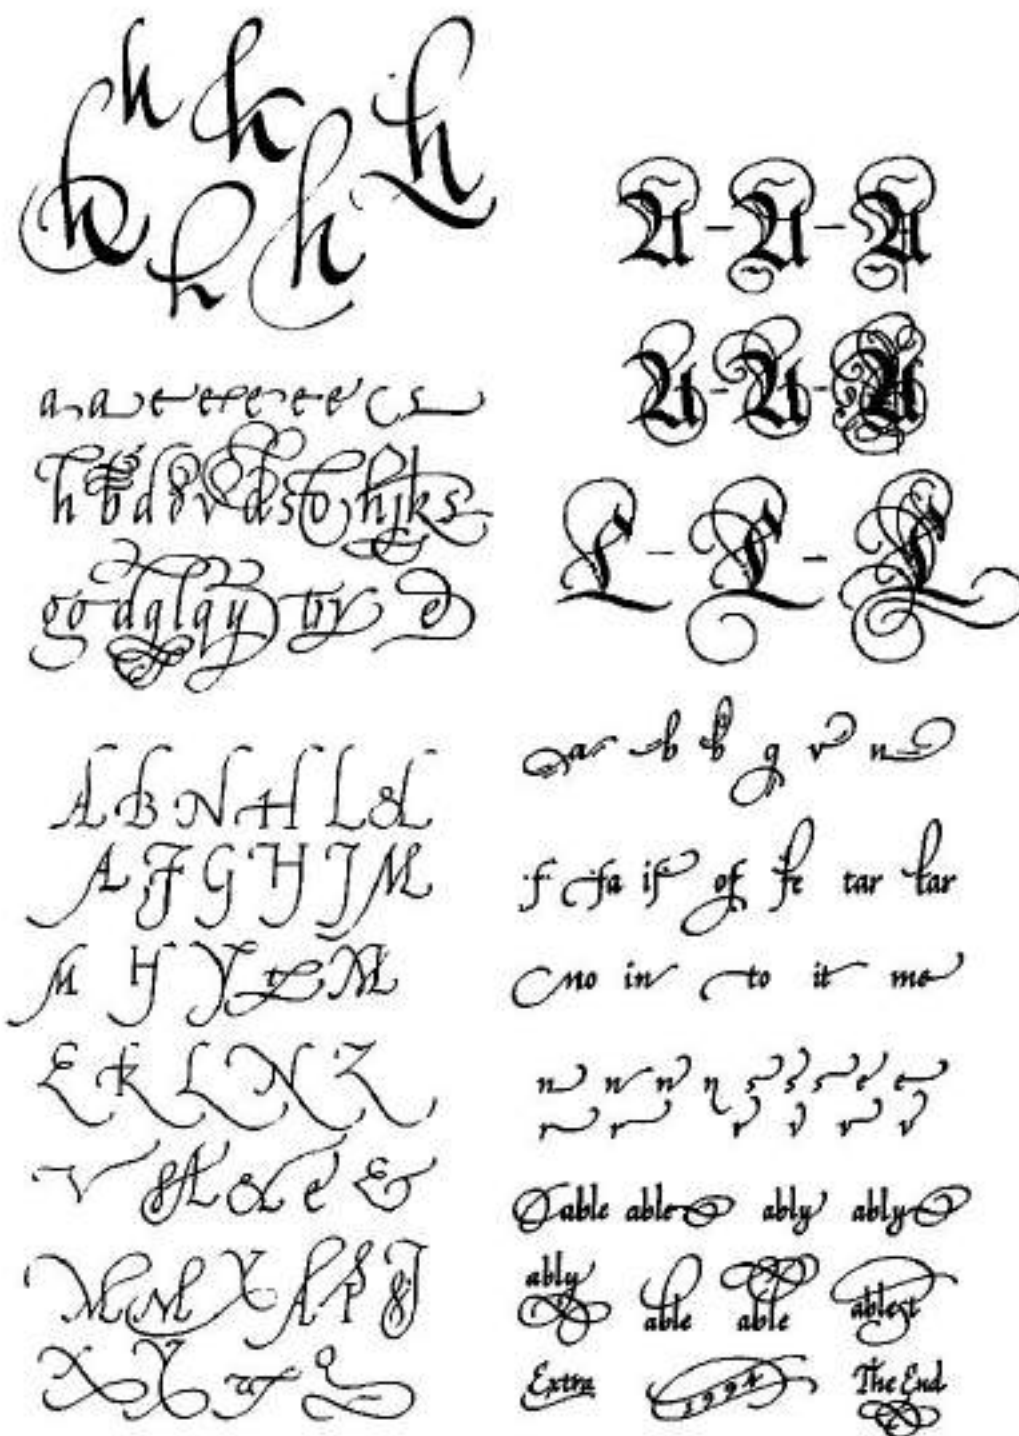 h k h
h h h
a a e e e e e e c s
h b d d v d s o h j k s
g o d g l q y try e
A B N H L &L
A F G H J M
M H Y & M
E K L N Z
V &L &L e &
M M X A P &J
X X
A - A - A
A - A - A
L - L - L
a b b g v n
f fa if of fe tar tar
no in to it me
n n n n s s s e e
r r r v v v
able able ably ably
ably able able ablest
Extra 1994 The End